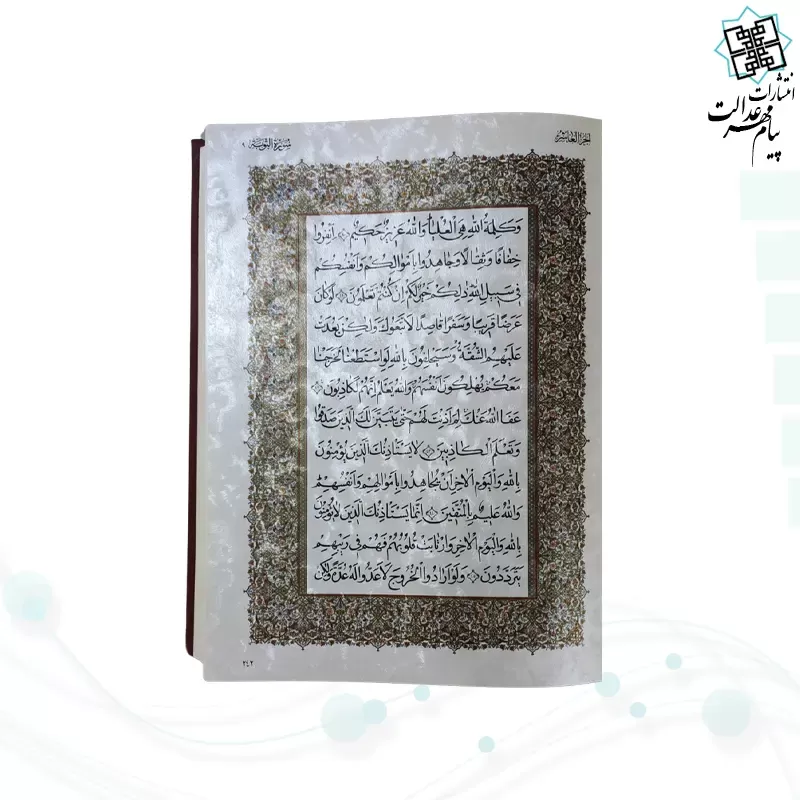 انتشارات
پیام مهر عدالت
الجزء العاشر
سورة التوبة ٩
وَكَلِمَةُ اللّٰهِ هِيَ الْعُلْيَا وَاللّٰهُ عَزِيزٌ حَكِيمٌ اِنْفِرُوا
خِفَافًا وَثِقَالًا وَجَاهِدُوا بِاَمْوَالِكُمْ وَاَنْفُسِكُمْ
فِي سَبِيلِ اللّٰهِ ذٰلِكُمْ خَيْرٌ لَكُمْ اِنْ كُنْتُمْ تَعْلَمُونَ لَوْ كَانَ
عَرَضًا قَرِيبًا وَسَفَرًا قَاصِدًا لَاتَّبَعُوكَ وَلٰكِنْ بَعُدَتْ
عَلَيْهِمُ الشُّقَّةُ وَسَيَحْلِفُونَ بِاللّٰهِ لَوِ اسْتَطَعْنَا لَخَرَجْنَا
مَعَكُمْ يُهْلِكُونَ اَنْفُسَهُمْ وَاللّٰهُ يَعْلَمُ اِنَّهُمْ لَكَاذِبُونَ
عَفَا اللّٰهُ عَنْكَ لِمَ اَذِنْتَ لَهُمْ حَتّٰى يَتَبَيَّنَ لَكَ الَّذِينَ صَدَقُوا
وَتَعْلَمَ الْكَاذِبِينَ لَا يَسْتَأْذِنُكَ الَّذِينَ يُؤْمِنُونَ
بِاللّٰهِ وَالْيَوْمِ الْاٰخِرِ اَنْ يُجَاهِدُوا بِاَمْوَالِهِمْ وَاَنْفُسِهِمْ
وَاللّٰهُ عَلِيمٌ بِالْمُتَّقِينَ اِنَّمَا يَسْتَأْذِنُكَ الَّذِينَ لَا يُؤْمِنُونَ
بِاللّٰهِ وَالْيَوْمِ الْاٰخِرِ وَارْتَابَتْ قُلُوبُهُمْ فَهُمْ فِي رَيْبِهِمْ
يَتَرَدَّدُونَ وَلَوْ اَرَادُوا الْخُرُوجَ لَاَعَدُّوا لَهُ عُدَّةً وَلٰكِنْ
٢٤٢